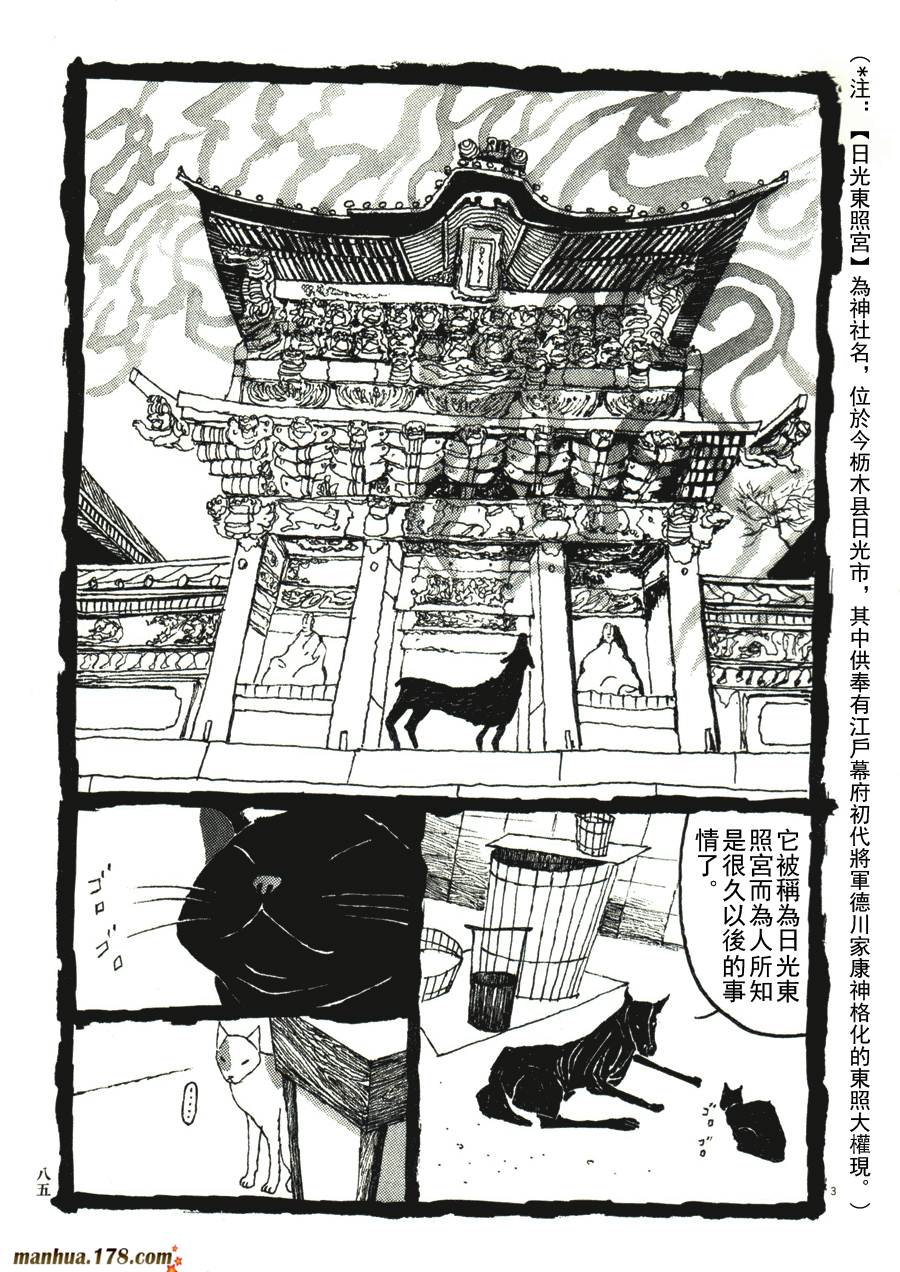 (*注：【日光東照宮】為神社名，位於今枥木县日光市，其中供奉有江戶幕府初代將軍德川家康神格化的東照大權現。)
它被稱為日光東
照宮而為人所知
是很久以後的事
情了。
ゴロ
ゴロ
ゴロ
ゴロ
……
3
八五
manhua.178.com